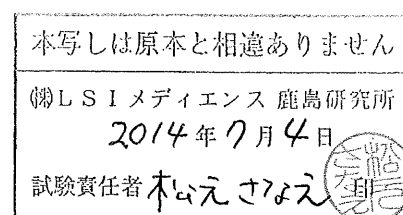 本写しは原本と相違ありません
㈱LSIメディエンス 鹿島研究所
2014年7月4日
試験責任者 松元 さなえ 印